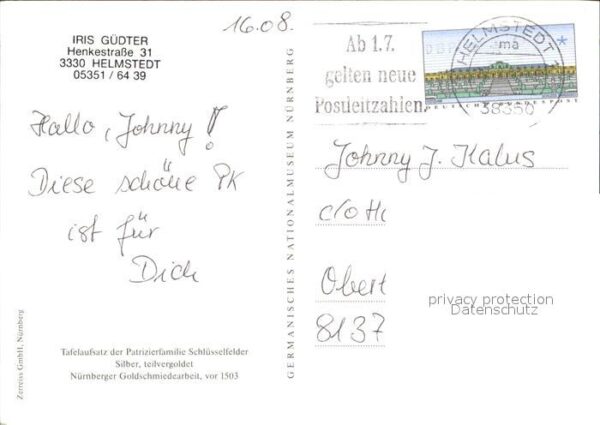 IRIS GÜDTER
Henkestraße 31
3330 HELMSTEDT
05351 / 64 39
16.08.
Hallo, Johnny!
Diese schöne PK
ist für
Dich
Tafelaufsatz der Patrizierfamilie Schlüsselfelder
Silber, teilvergoldet
Nürnberger Goldschmiedearbeit, vor 1503
Zerreiss GmbH, Nürnberg
GERMANISCHES NATIONALMUSEUM NÜRNBERG
Ab 1.7.
gelten neue
Postleitzahlen
HELMSTEDT 1
ma
38350
DEUTSCHE BUNDESPOST
Johnny J. Kalus
c/o
Obert
8137
privacy protection
Datenschutz